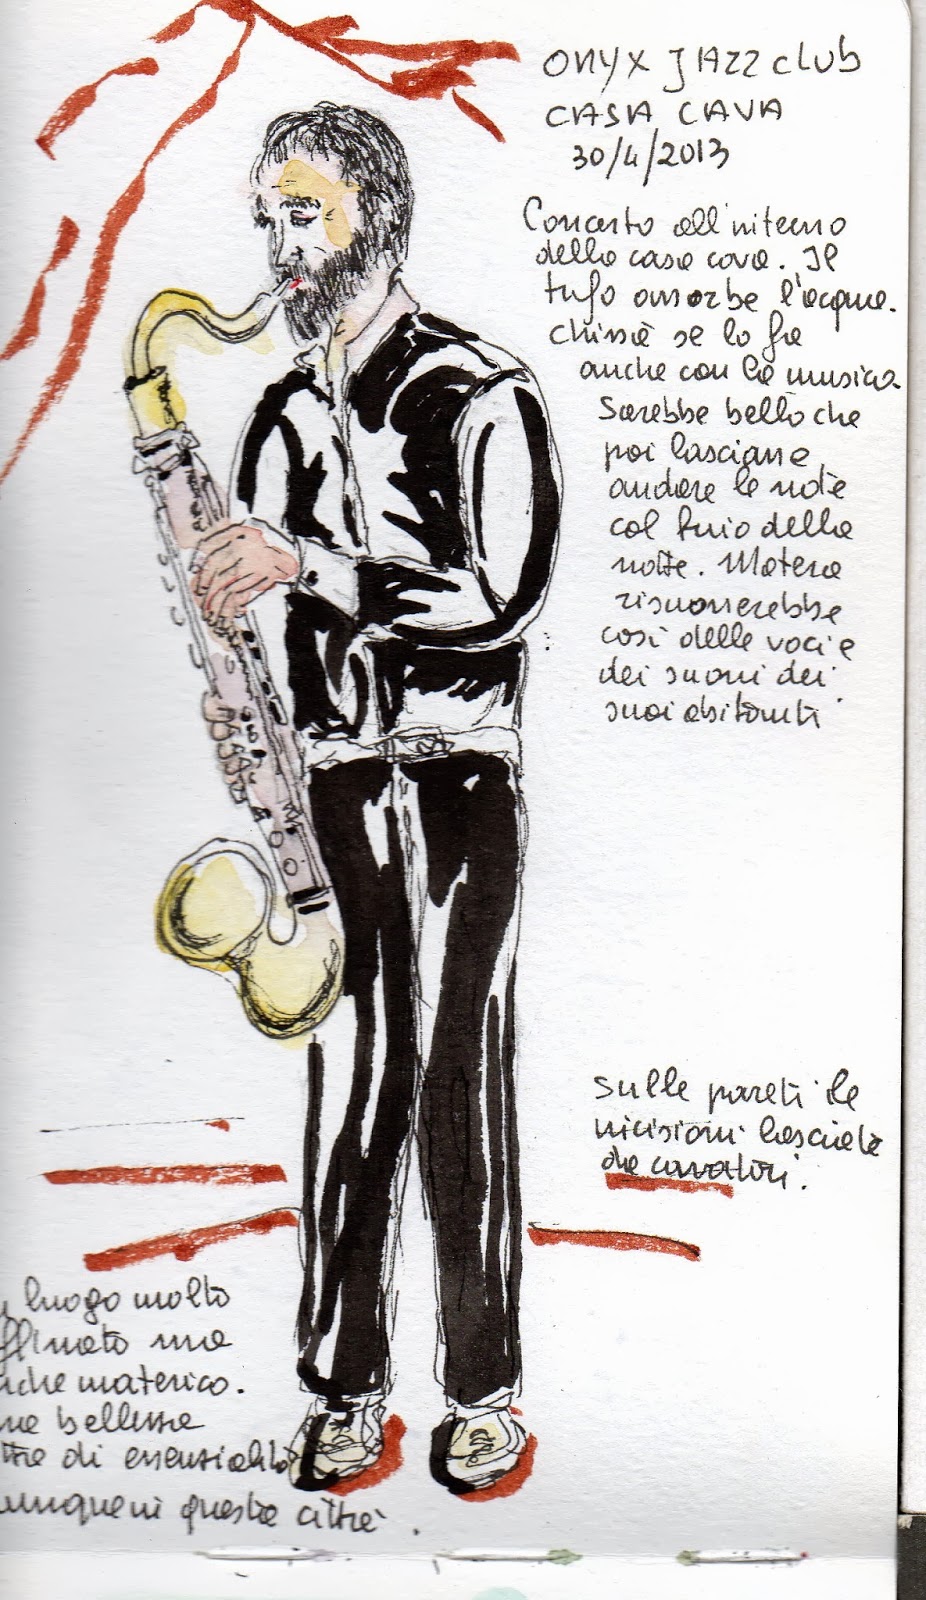 ONYX JAZZ club
CASA CAVA
30/4/2013
Concerto all'interno
della casa cava. Il
tufo assorbe l'acqua.
Chissà se lo fa
anche con la musica.
Sarebbe bello che
poi lasciasse
andare le note
col buio della
notte. Matera
risuonerebbe
così delle voci e
dei suoni dei
suoi abitanti
Sulle pareti le
incisioni lasciate
dai cavatori.
luogo molto
ffinato ma
nche materico.
na bellezza
tta di essenzialità
unque in questa città.